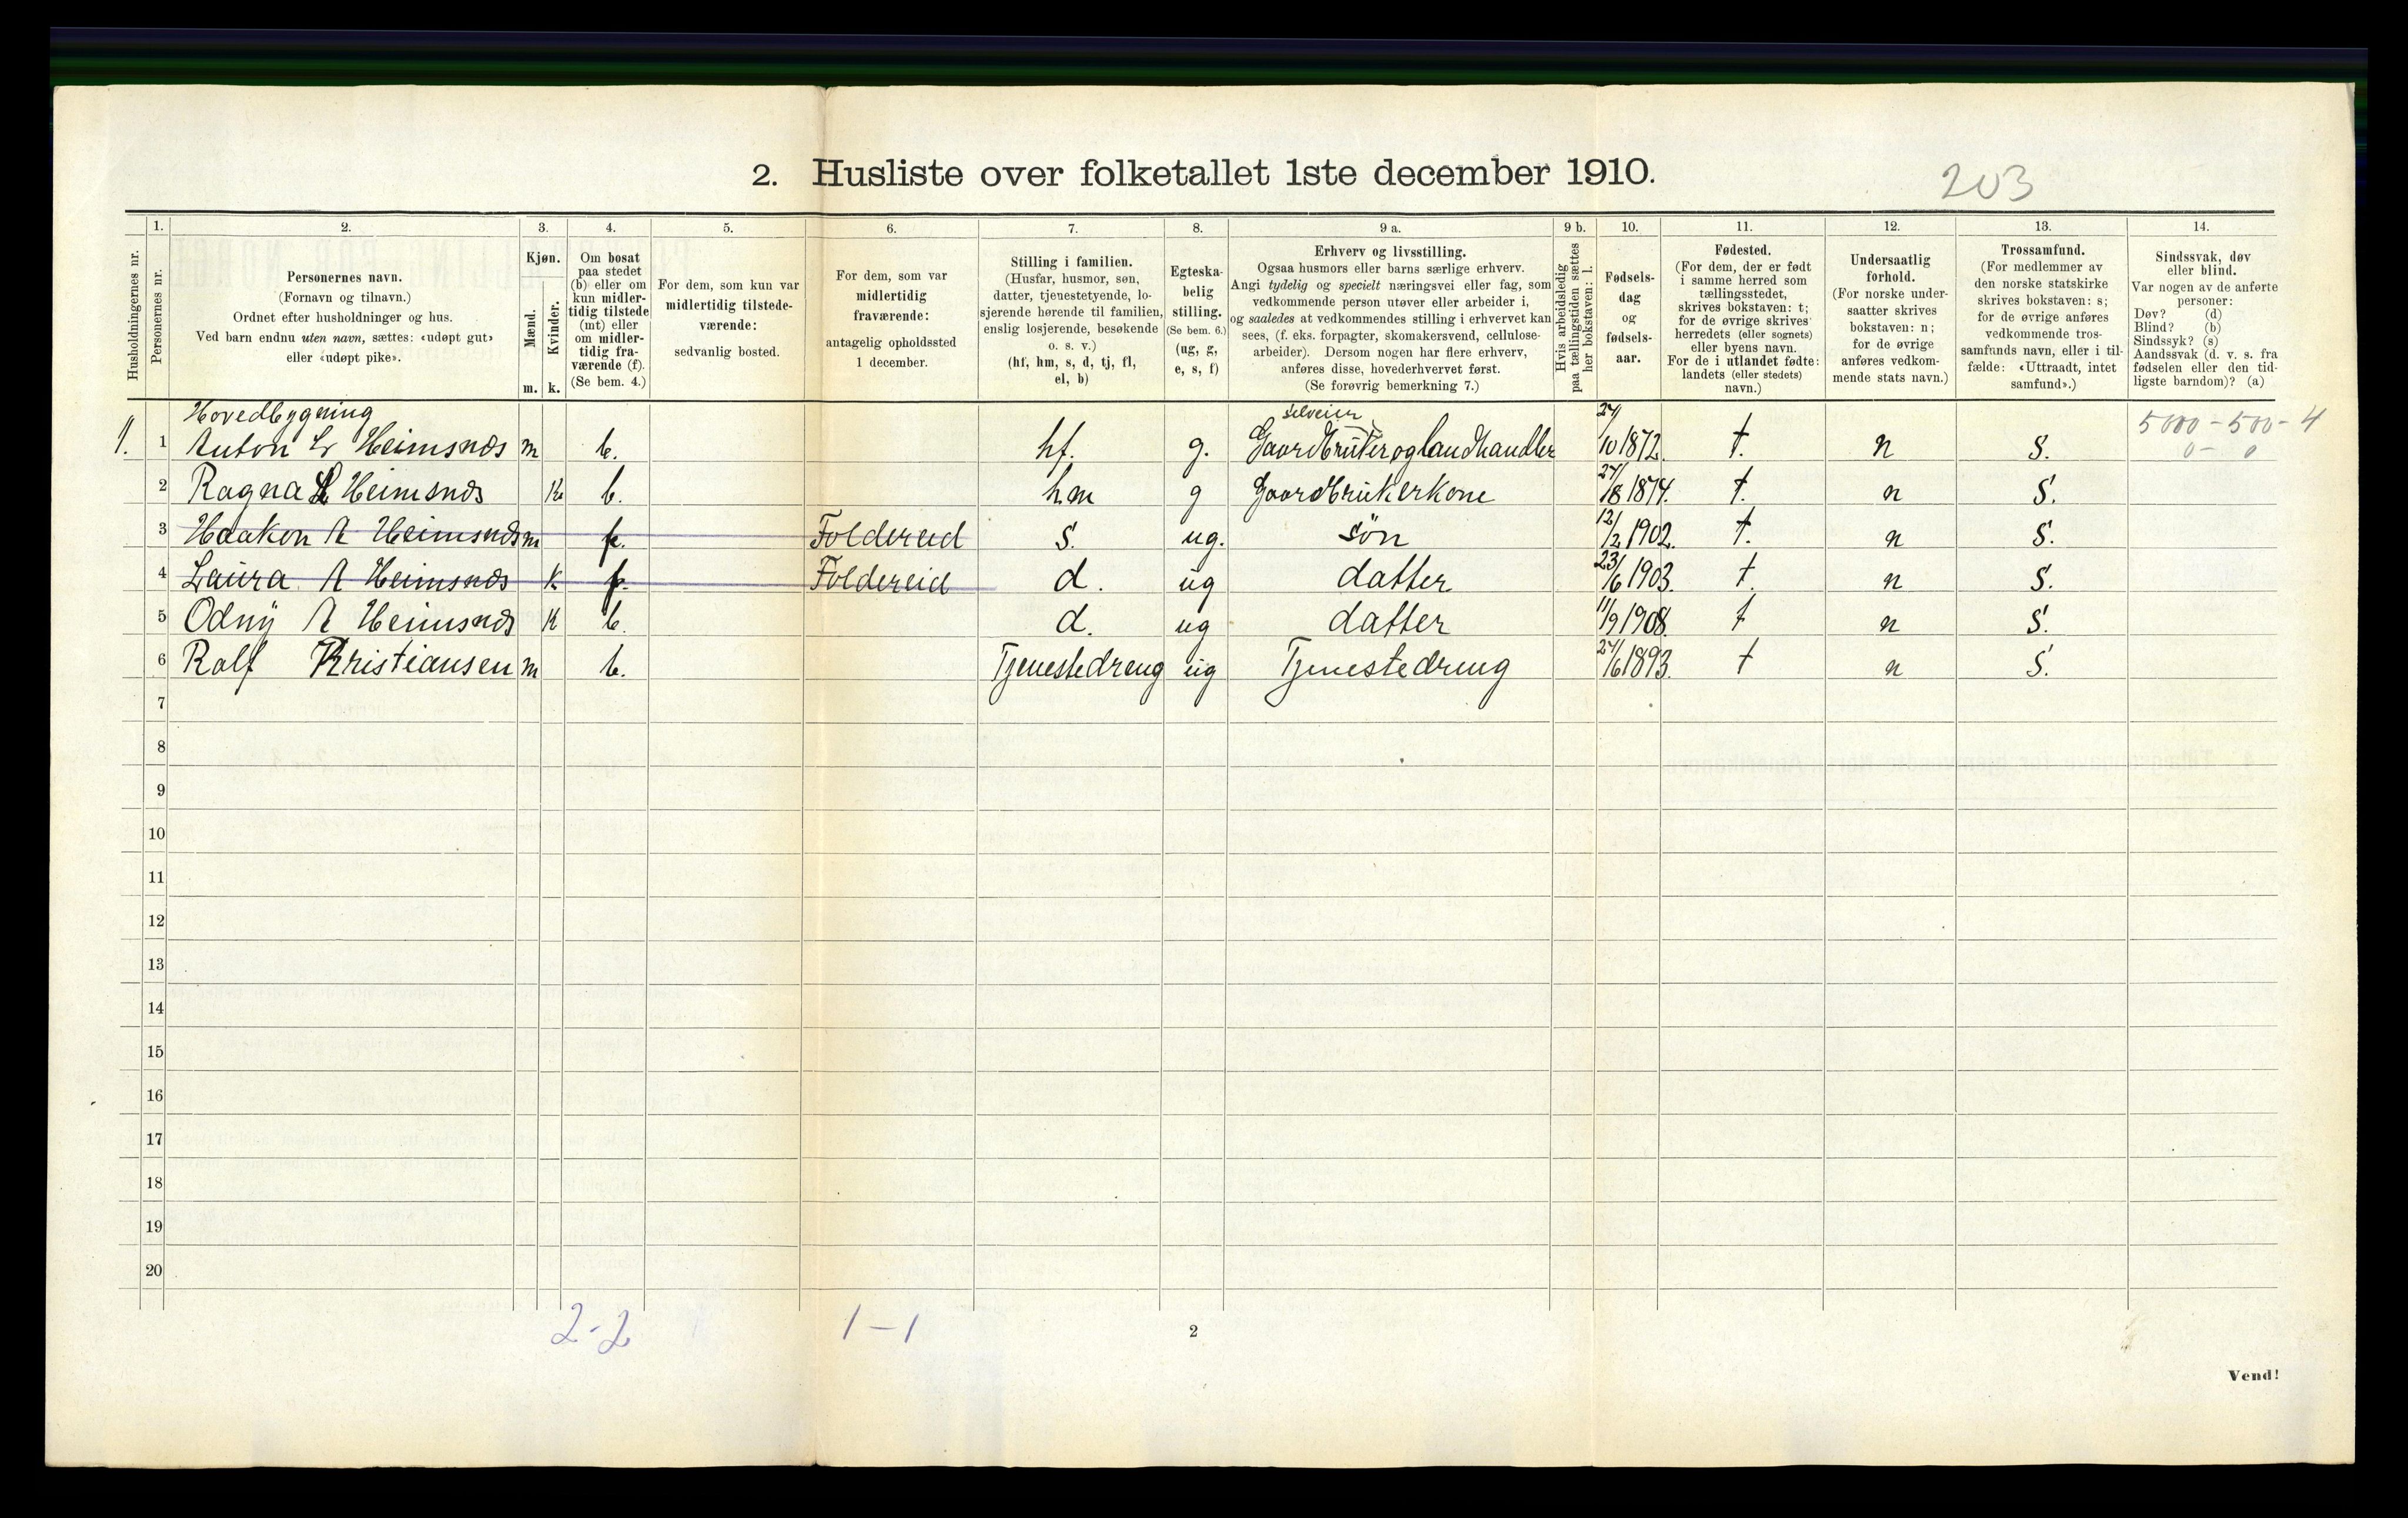 2. Husliste over folketallet 1ste december 1910.
203
Husholdningernes nr.
1.
Personernes nr.
2.
Personernes navn.
(Fornavn og tilnavn.)
Ordnet efter husholdninger og hus.
Ved barn endnu uten navn, sættes: «udøpt gut»
eller «udøpt pike».
3.
Kjøn.
Mænd.
Kvinder.
m. k.
4.
Om bosat
paa stedet
(b) eller om
kun midler-
tidig tilstede
(mt) eller
om midler-
tidig fra-
værende (f).
(Se bem. 4.)
5.
For dem, som kun var
midlertidig tilstede-
værende:
sedvanlig bosted.
6.
For dem, som var
midlertidig
fraværende:
antagelig opholdssted
1 december.
7.
Stilling i familien.
(Husfar, husmor, søn,
datter, tjenestetyende, lo-
sjerende hørende til familien,
enslig losjerende, besøkende
o. s. v.)
(hf, hm, s, d, tj, fl,
el, b)
8.
Egteska-
belig
stilling.
(Se bem. 6.)
(ug, g,
e, s, f)
9 a.
Erhverv og livsstilling.
Ogsaa husmors eller barns særlige erhverv.
Angi tydelig og specielt næringsvei eller fag, som
vedkommende person utøver eller arbeider i,
og saaledes at vedkommendes stilling i erhvervet kan
sees, (f. eks. forpagter, skomakersvend, cellulose-
arbeider). Dersom nogen har flere erhverv,
anføres disse, hovederhvervet først.
(Se forøvrig bemerkning 7.)
9 b.
Hvis arbeidsledig
paa tællingstiden sættes
her bokstaven: l.
10.
Fødsels-
dag
og
fødsels-
aar.
11.
Fødested.
(For dem, der er født
i samme herred som
tællingsstedet,
skrives bokstaven: t;
for de øvrige skrives
herredets (eller sognets)
eller byens navn.
For de i utlandet fødte:
landets (eller stedets)
navn.)
12.
Undersaatlig
forhold.
(For norske under-
saatter skrives
bokstaven: n;
for de øvrige
anføres vedkom-
mende stats navn.)
13.
Trossamfund.
(For medlemmer av
den norske statskirke
skrives bokstaven: s;
for de øvrige anføres
vedkommende tros-
samfunds navn, eller i til-
fælde: «Uttraadt, intet
samfund».)
14.
Sindssvak, døv
eller blind.
Var nogen av de anførte
personer:
Døv? (d)
Blind? (b)
Sindssyk? (s)
Aandssvak (d. v. s. fra
fødselen eller den tid-
ligste barndom)? (a)
Hovedbygning
selveier
5000 - 500 - 4
0 - 0
1. 1 Anton Heimsnæs m b. hf. g. Gaardbruker og landhandler 24/10 1872. t. n s.
2 Ragna Heimsnæs k b. hm g Gaardbrukerkone 24/8 1874. t. n s.
3 Haakon A Heimsnæs m f. Foldereid s. ug. søn 12/2 1902. t. n s.
4 Laura A Heimsnæs k f. Foldereid d. ug datter 23/6 1903. t. n s.
5 Odny A Heimsnæs k b. d. ug datter 11/9 1908. t n s.
6 Rolf Kristiansen m b. Tjenestedreng ug Tjenestedreng 24/6 1893. t n s.
7
8
9
10
11
12
13
14
15
16
17
18
19
20
2-2 1-1
2
Vend!